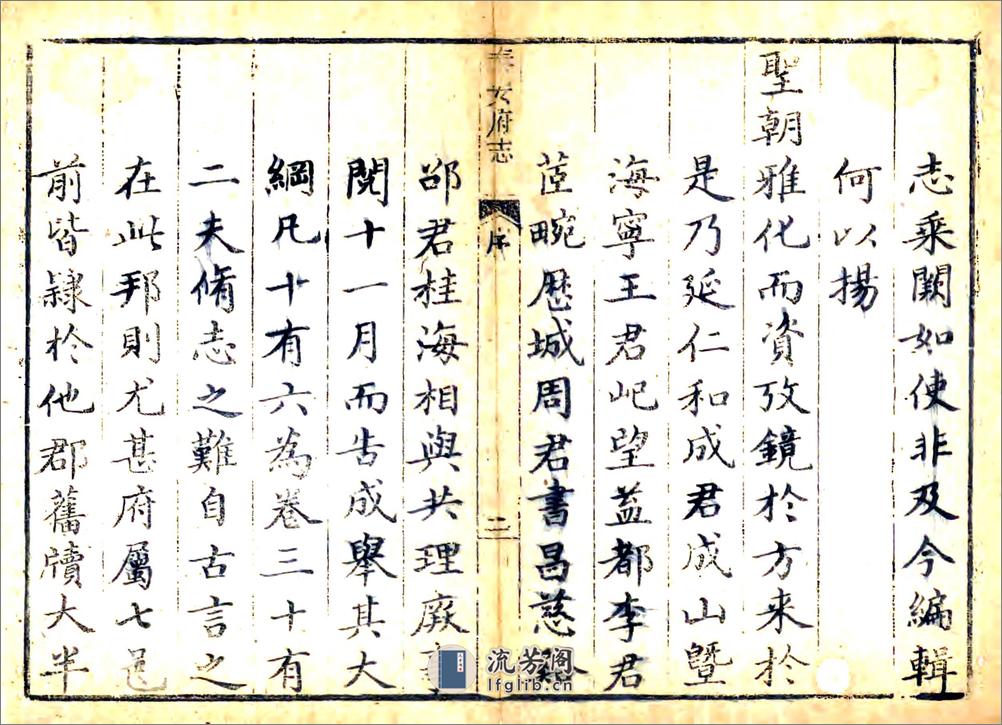 志乘闕如使非及今編輯
何以揚
聖朝雅化而資攷鏡於方來於
是乃延仁和成君成山暨
海寧王君屺望益都李君
茝畹歷城周君書昌慈谿
泰安府志
序
二
邵君桂海相與共理厥事
閱十一月而告成舉其大
綱凡十有六為卷三十有
二夫脩志之難自古言之
在此邦則尤甚府屬七邑
前皆隸於他郡舊牘大半
流芳阁
lfglib.cn